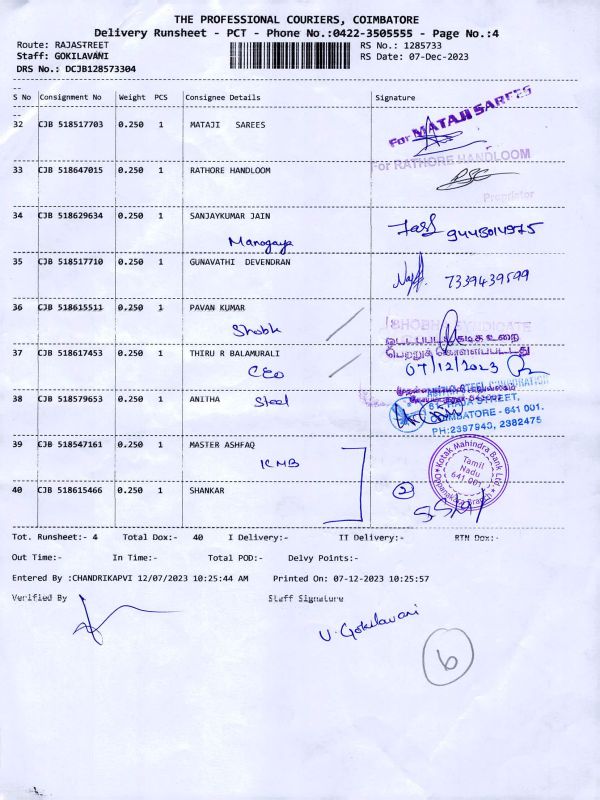 THE PROFESSIONAL COURIERS, COIMBATORE
Delivery Runsheet - PCT - Phone No.:0422-3505555 - Page No.:4
Route: RAJASTREET
RS No.: 1285733
Staff: GOKILAVANI
RS Date: 07-Dec-2023
DRS No.: DCJB128573304
S No Consignment No Weight PCS Consignee Details Signature
32 CJB 518517703 0.250 1 MATAJI SAREES
For MATAJI SAREES
33 CJB 518647015 0.250 1 RATHORE HANDLOOM
For RATHORE HANDLOOM
Proprietor
34 CJB 518629634 0.250 1 SANJAYKUMAR JAIN
Manogaya
9445014975
35 CJB 518517710 0.250 1 GUNAVATHI DEVENDRAN
7339439599
36 CJB 518615511 0.250 1 PAVAN KUMAR
Shobk
37 CJB 518617453 0.250 1 THIRU R BALAMURALI
CEO
07/12/2023
38 CJB 518579653 0.250 1 ANITHA
Steel
COIMBATORE - 641 001.
PH:2397940, 2382475
39 CJB 518547161 0.250 1 MASTER ASHFAQ
KMB
Kotak Mahindra Bank Ltd.
Tamil
Nadu
641 001
40 CJB 518615466 0.250 1 SHANKAR
2
Tot. Runsheet:- 4 Total Dox:- 40 I Delivery:- II Delivery:- RTN Dox:-
Out Time:- In Time:- Total POD:- Delvy Points:-
Entered By :CHANDRIKAPVI 12/07/2023 10:25:44 AM Printed On: 07-12-2023 10:25:57
Verified By Staff Signature
V. Gokilavani
6